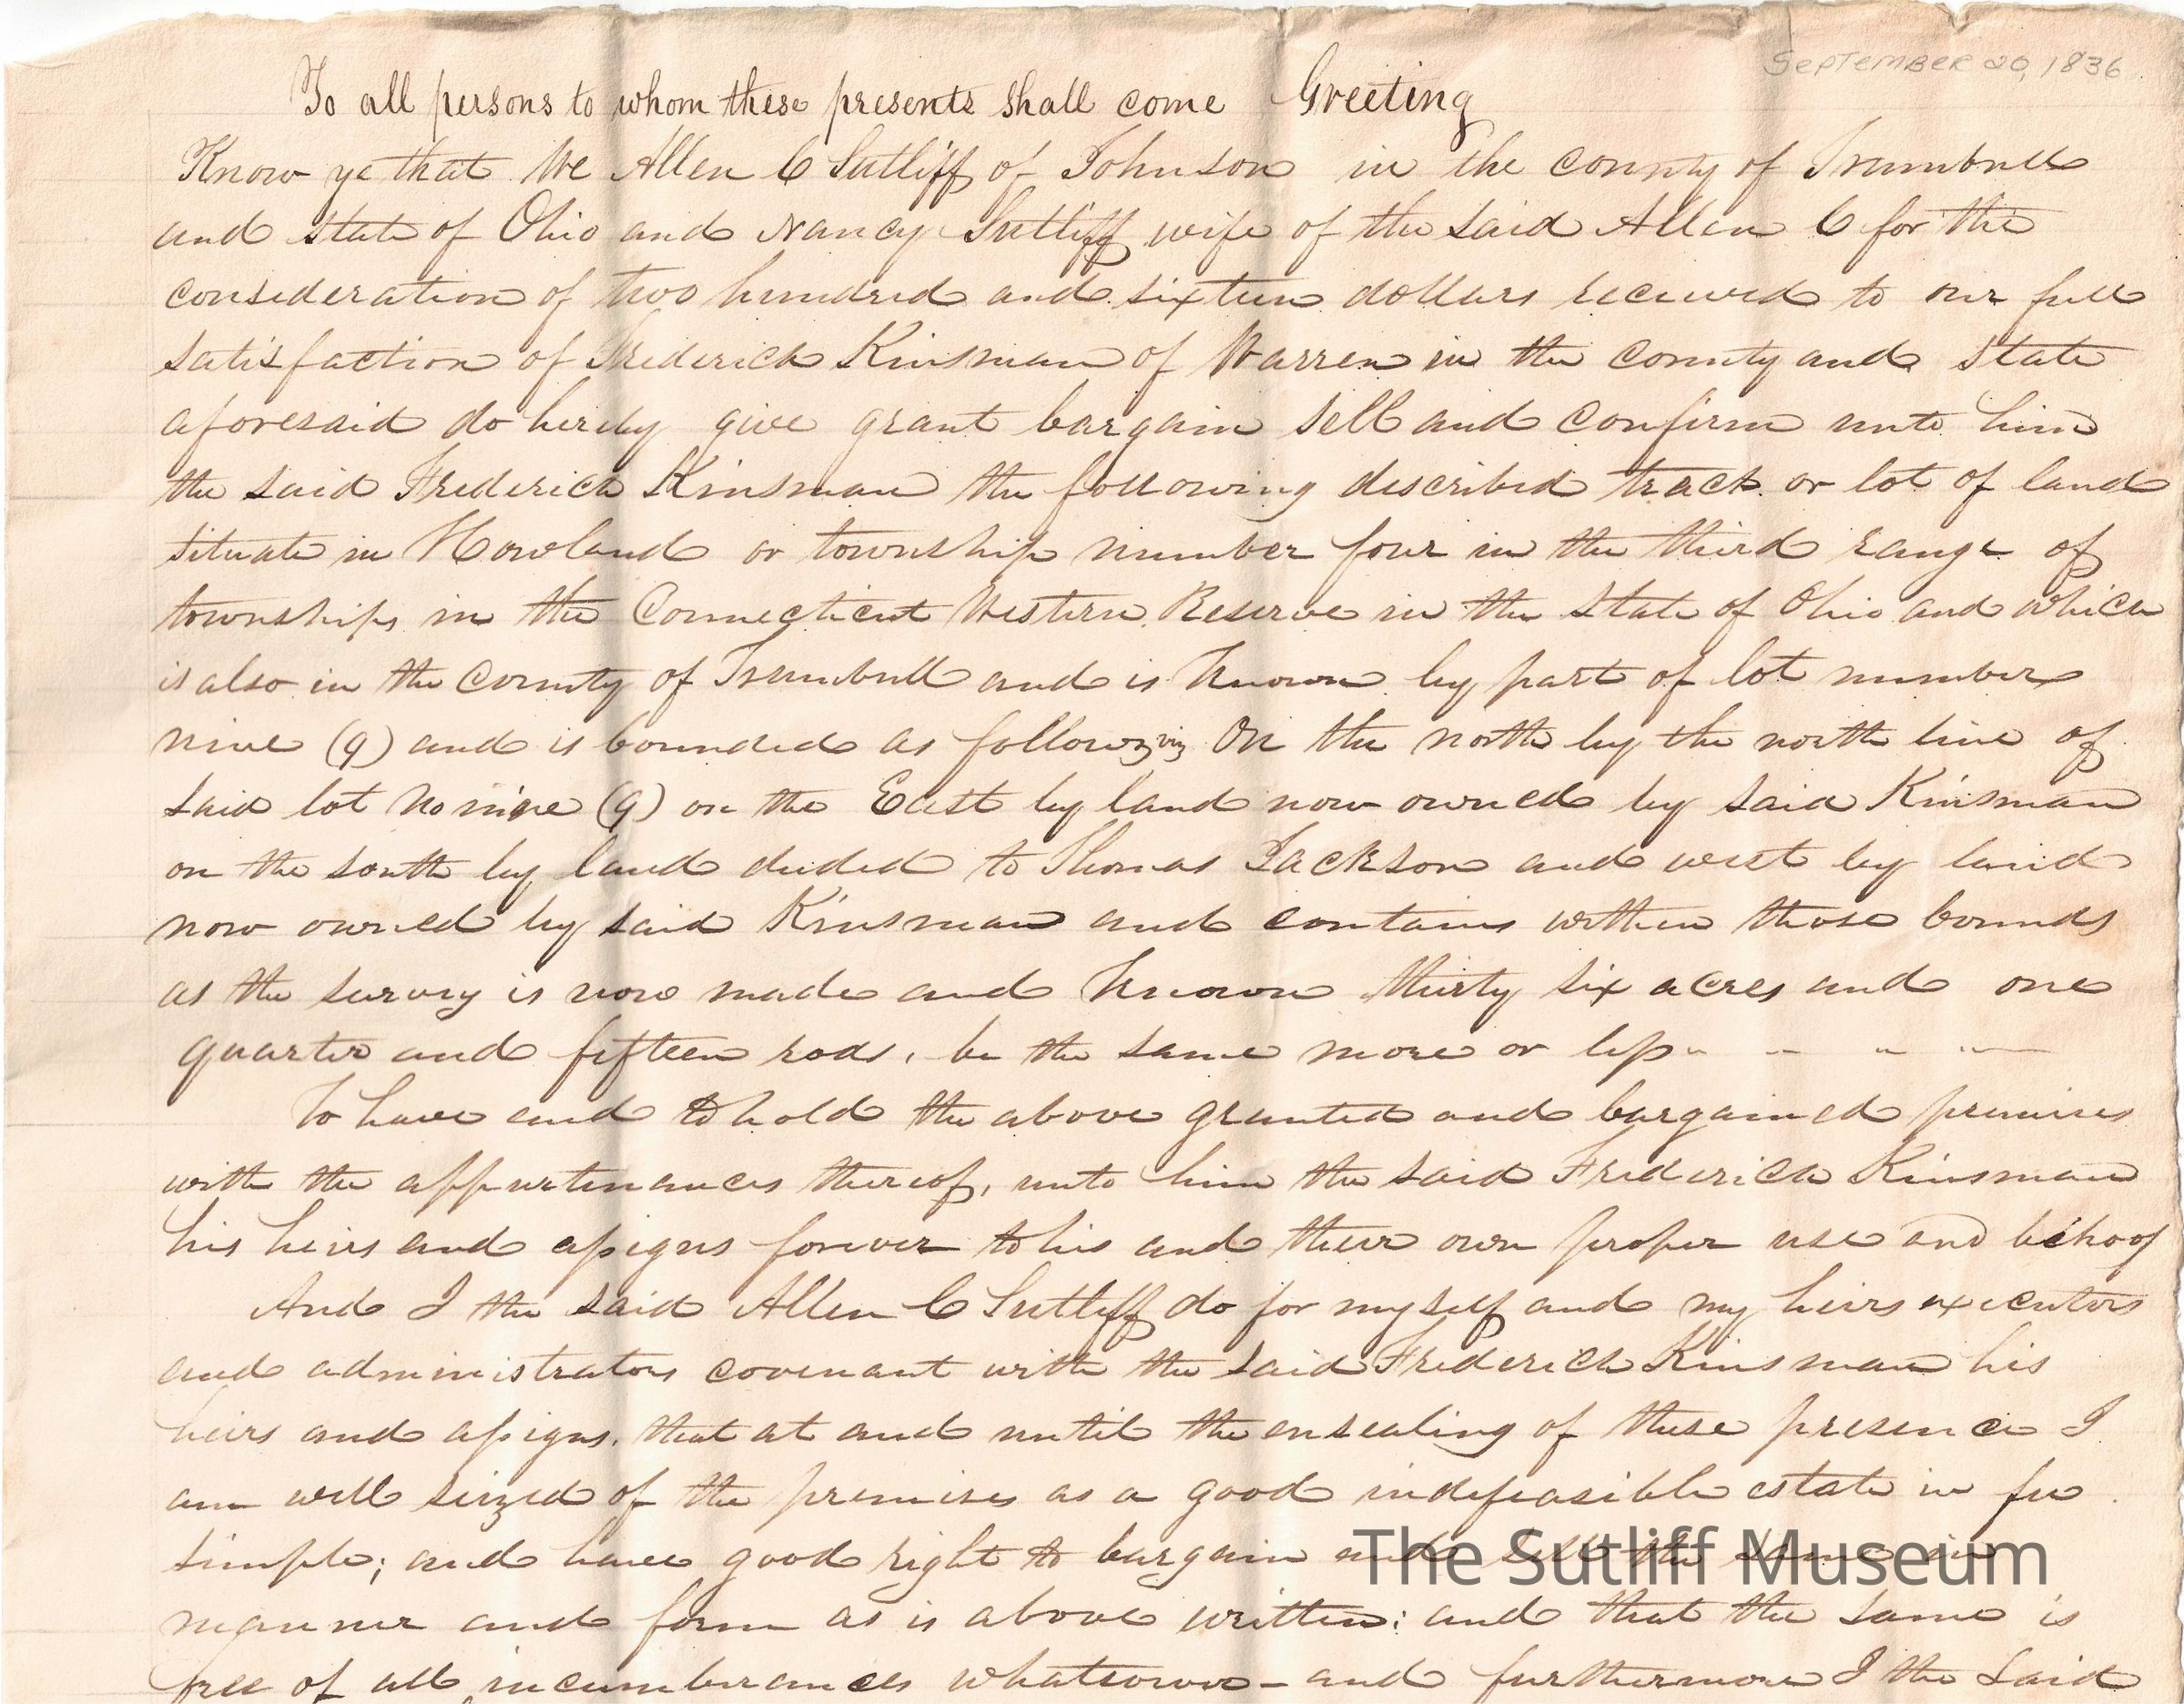 SEPTEMBER 20, 1836
To all persons to whom these presents shall come Greeting
Know ye that We Allen C Sutliff of Johnson in the county of Trumbull
and state of Ohio and Nancy Sutliff wife of the said Allen C for the
consideration of two hundred and sixteen dollars received to our full
satisfaction of Frederick Kinsman of Warren in the county and state
aforesaid do hereby give grant bargain sell and confirm unto him
the said Frederick Kinsman the following described track or lot of land
situate in Howland or township number four in the third range of
townships in the Connecticut Western Reserve in the State of Ohio and which
is also in the County of Trumbull and is known by part of lot number
nine (9) and is bounded as follows viz On the north by the north line of
said lot No nine (9) on the East by land now owned by said Kinsman
on the south by land deeded to Thomas Jackson and west by land
now owned by said Kinsman and contains within those bounds
as the survey is now made and known thirty six acres and one
quarter and fifteen rods, be the same more or less " " " "
To have and to hold the above granted and bargained premises
with the appurtenances thereof, unto him the said Frederick Kinsman
his heirs and assigns forever to his and their own proper use and behoof
And I the said Allen C Sutliff do for myself and my heirs executors
and administrators covenant with the said Frederick Kinsman his
heirs and assigns, that at and until the ensealing of these presence I
am well seized of the premises as a good indefeasible estate in fee
simple; and have good right to bargain and sell the same in
manner and form as is above written: and that the same is
free of all incumberances whatsoever - and furthermore I the said
The Sutliff Museum